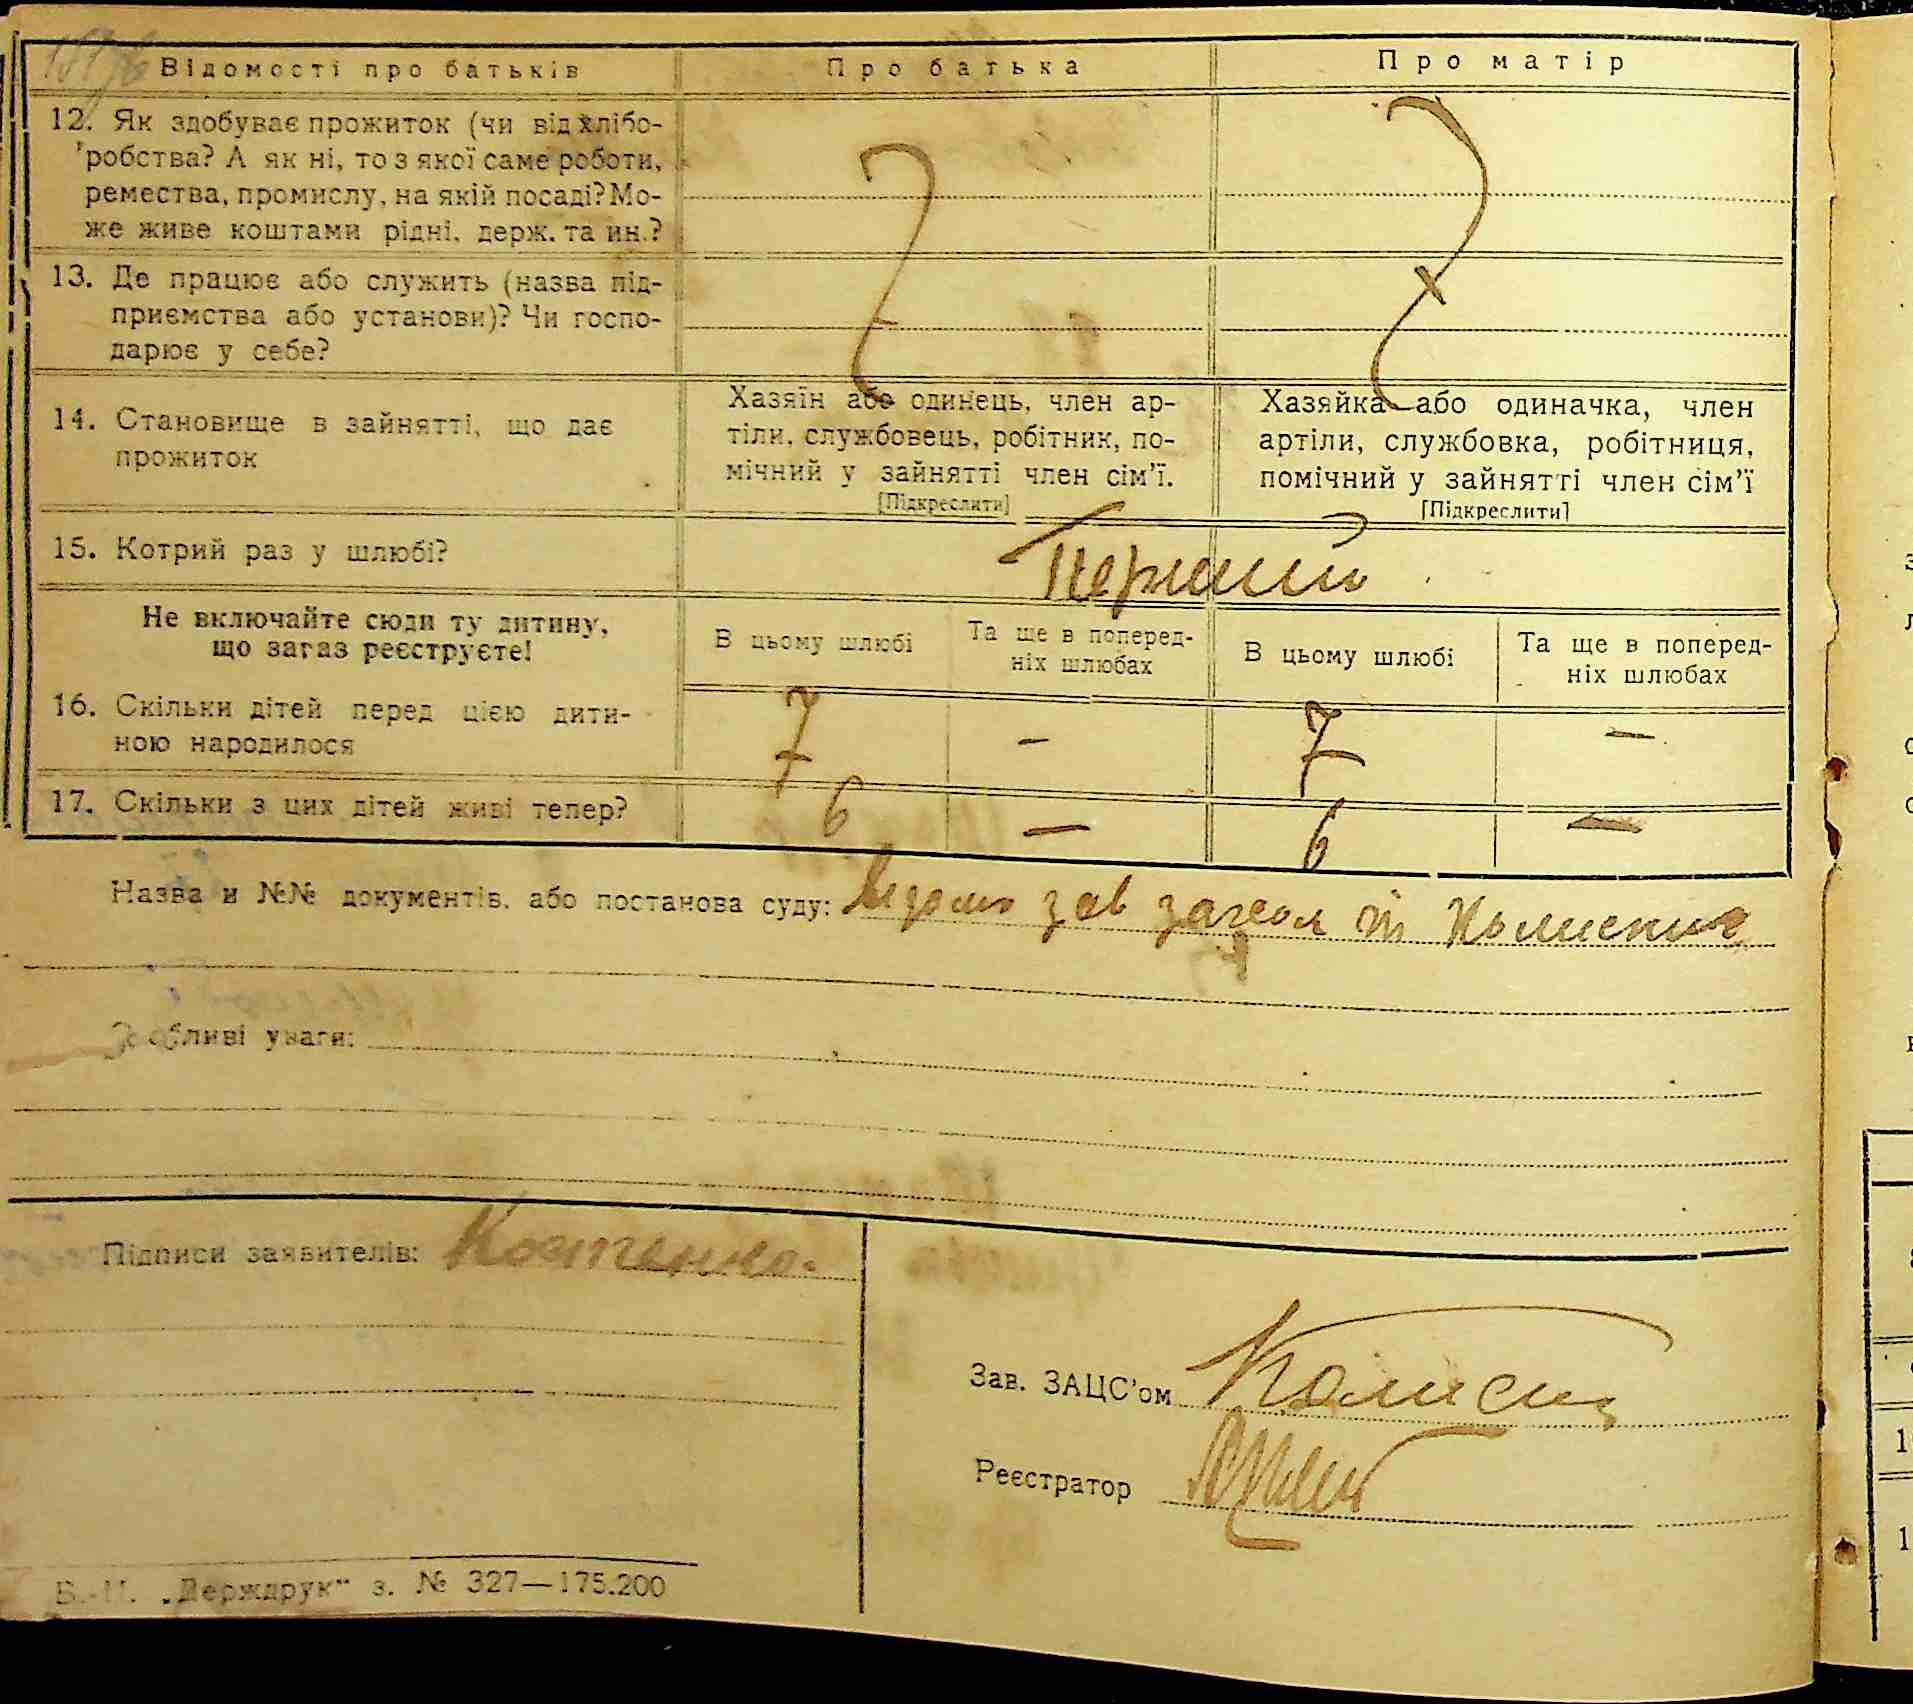 Відомості про батьків
Про батька
Про матір
12. Як здобуває прожиток (чи від хлібо-
робства? А як ні, то з якої саме роботи,
ремества, промислу, на якій посаді? Мо-
же живе коштами рідні, держ. та ин.?
13. Де працює або служить (назва під-
приємства або установи)? Чи госпо-
дарює у себе?
14. Становище в зайнятті, що дає
прожиток
Хазяїн або одинець, член ар-
тіли, службовець, робітник, по-
мічний у зайнятті член сім'ї.
[Підкреслити]
Хазяйка або одиначка, член
артіли, службовка, робітниця,
помічний у зайнятті член сім'ї
[Підкреслити]
15. Котрий раз у шлюбі?
Перший
Не включайте сюди ту дитину,
що загаз реєструєте!
В цьому шлюбі
Та ще в поперед-
ніх шлюбах
В цьому шлюбі
Та ще в поперед-
ніх шлюбах
16. Скільки дітей перед цією дити-
ною народилося
7 – 7 –
17. Скільки з цих дітей живі тепер?
6 – 6 –
Назва и №№ документів, або постанова суду: зав
Особливі уваги:
Підписи заявителів: Костенко.
Зав. ЗАЦС'ом
Реєстратор
Б.-Ц. „Держдрук" з. № 327—175.200